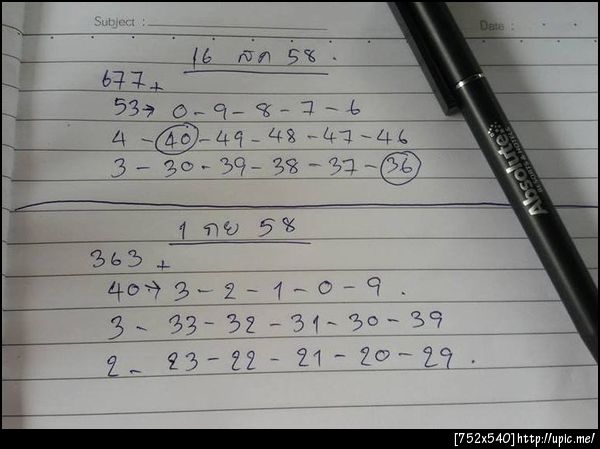 Subject : Date :
16 สค 58.
677 +
53→ 0-9-8-7-6
4 - 40-49-48-47-46
3 - 30-39-38-37-36
1 กย 58
363 +
40→ 3-2-1-0-9.
3 - 33-32-31-30-39
2 - 23-22-21-20-29.
Absolute
[752x540] http://upic.me/